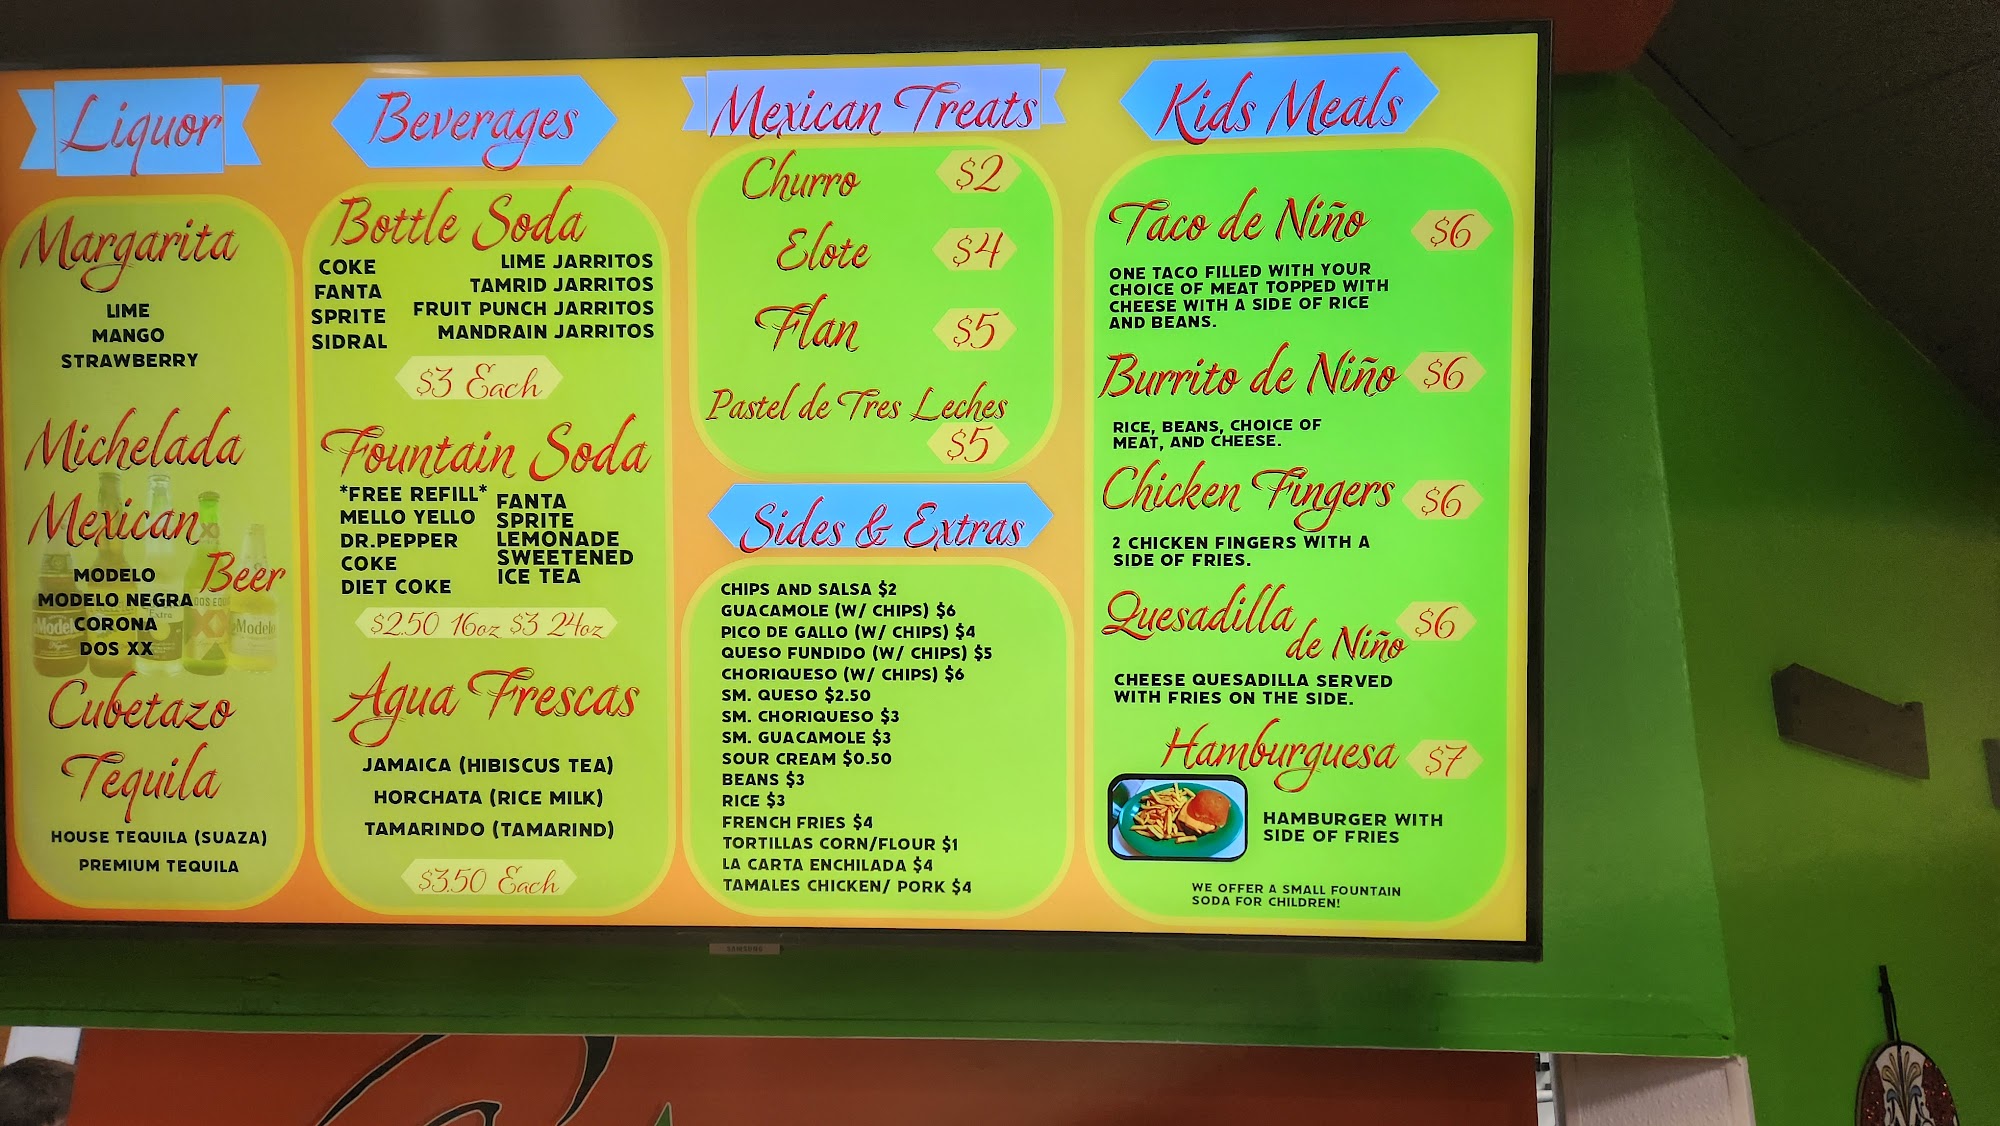 Liquor
Margarita
LIME
MANGO
STRAWBERRY
Michelada
Mexican
Beer
MODELO
MODELO NEGRA
CORONA
DOS XX
Cubetazo
Tequila
HOUSE TEQUILA (SUAZA)
PREMIUM TEQUILA
Beverages
Bottle Soda
COKE
FANTA
SPRITE
SIDRAL
LIME JARRITOS
TAMRID JARRITOS
FRUIT PUNCH JARRITOS
MANDRAIN JARRITOS
$3 Each
Fountain Soda
*FREE REFILL*
MELLO YELLO
DR.PEPPER
COKE
DIET COKE
FANTA
SPRITE
LEMONADE
SWEETENED
ICE TEA
$2.50 16oz $3 24oz
Agua Frescas
JAMAICA (HIBISCUS TEA)
HORCHATA (RICE MILK)
TAMARINDO (TAMARIND)
$3.50 Each
Mexican Treats
Churro $2
Elote $4
Flan $5
Pastel de Tres Leches
$5
Sides & Extras
CHIPS AND SALSA $2
GUACAMOLE (W/ CHIPS) $6
PICO DE GALLO (W/ CHIPS) $4
QUESO FUNDIDO (W/ CHIPS) $5
CHORIQUESO (W/ CHIPS) $6
SM. QUESO $2.50
SM. CHORIQUESO $3
SM. GUACAMOLE $3
SOUR CREAM $0.50
BEANS $3
RICE $3
FRENCH FRIES $4
TORTILLAS CORN/FLOUR $1
LA CARTA ENCHILADA $4
TAMALES CHICKEN/ PORK $4
Kids Meals
Taco de Niño $6
ONE TACO FILLED WITH YOUR
CHOICE OF MEAT TOPPED WITH
CHEESE WITH A SIDE OF RICE
AND BEANS.
Burrito de Niño $6
RICE, BEANS, CHOICE OF
MEAT, AND CHEESE.
Chicken Fingers $6
2 CHICKEN FINGERS WITH A
SIDE OF FRIES.
Quesadilla
de Niño $6
CHEESE QUESADILLA SERVED
WITH FRIES ON THE SIDE.
Hamburguesa $7
HAMBURGER WITH
SIDE OF FRIES
WE OFFER A SMALL FOUNTAIN
SODA FOR CHILDREN!
SAMSUNG
Modelo
Extra
Modelo